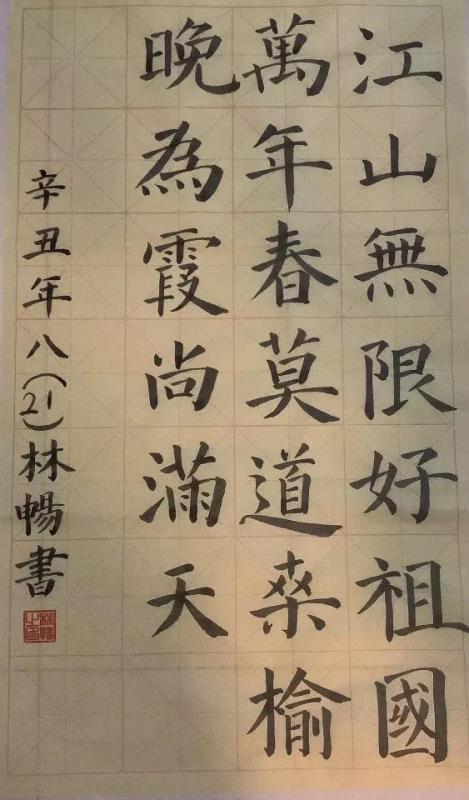 江山無限好祖國
萬年春莫道桑榆
晚為霞尚滿天
辛丑年八(21)林暢書